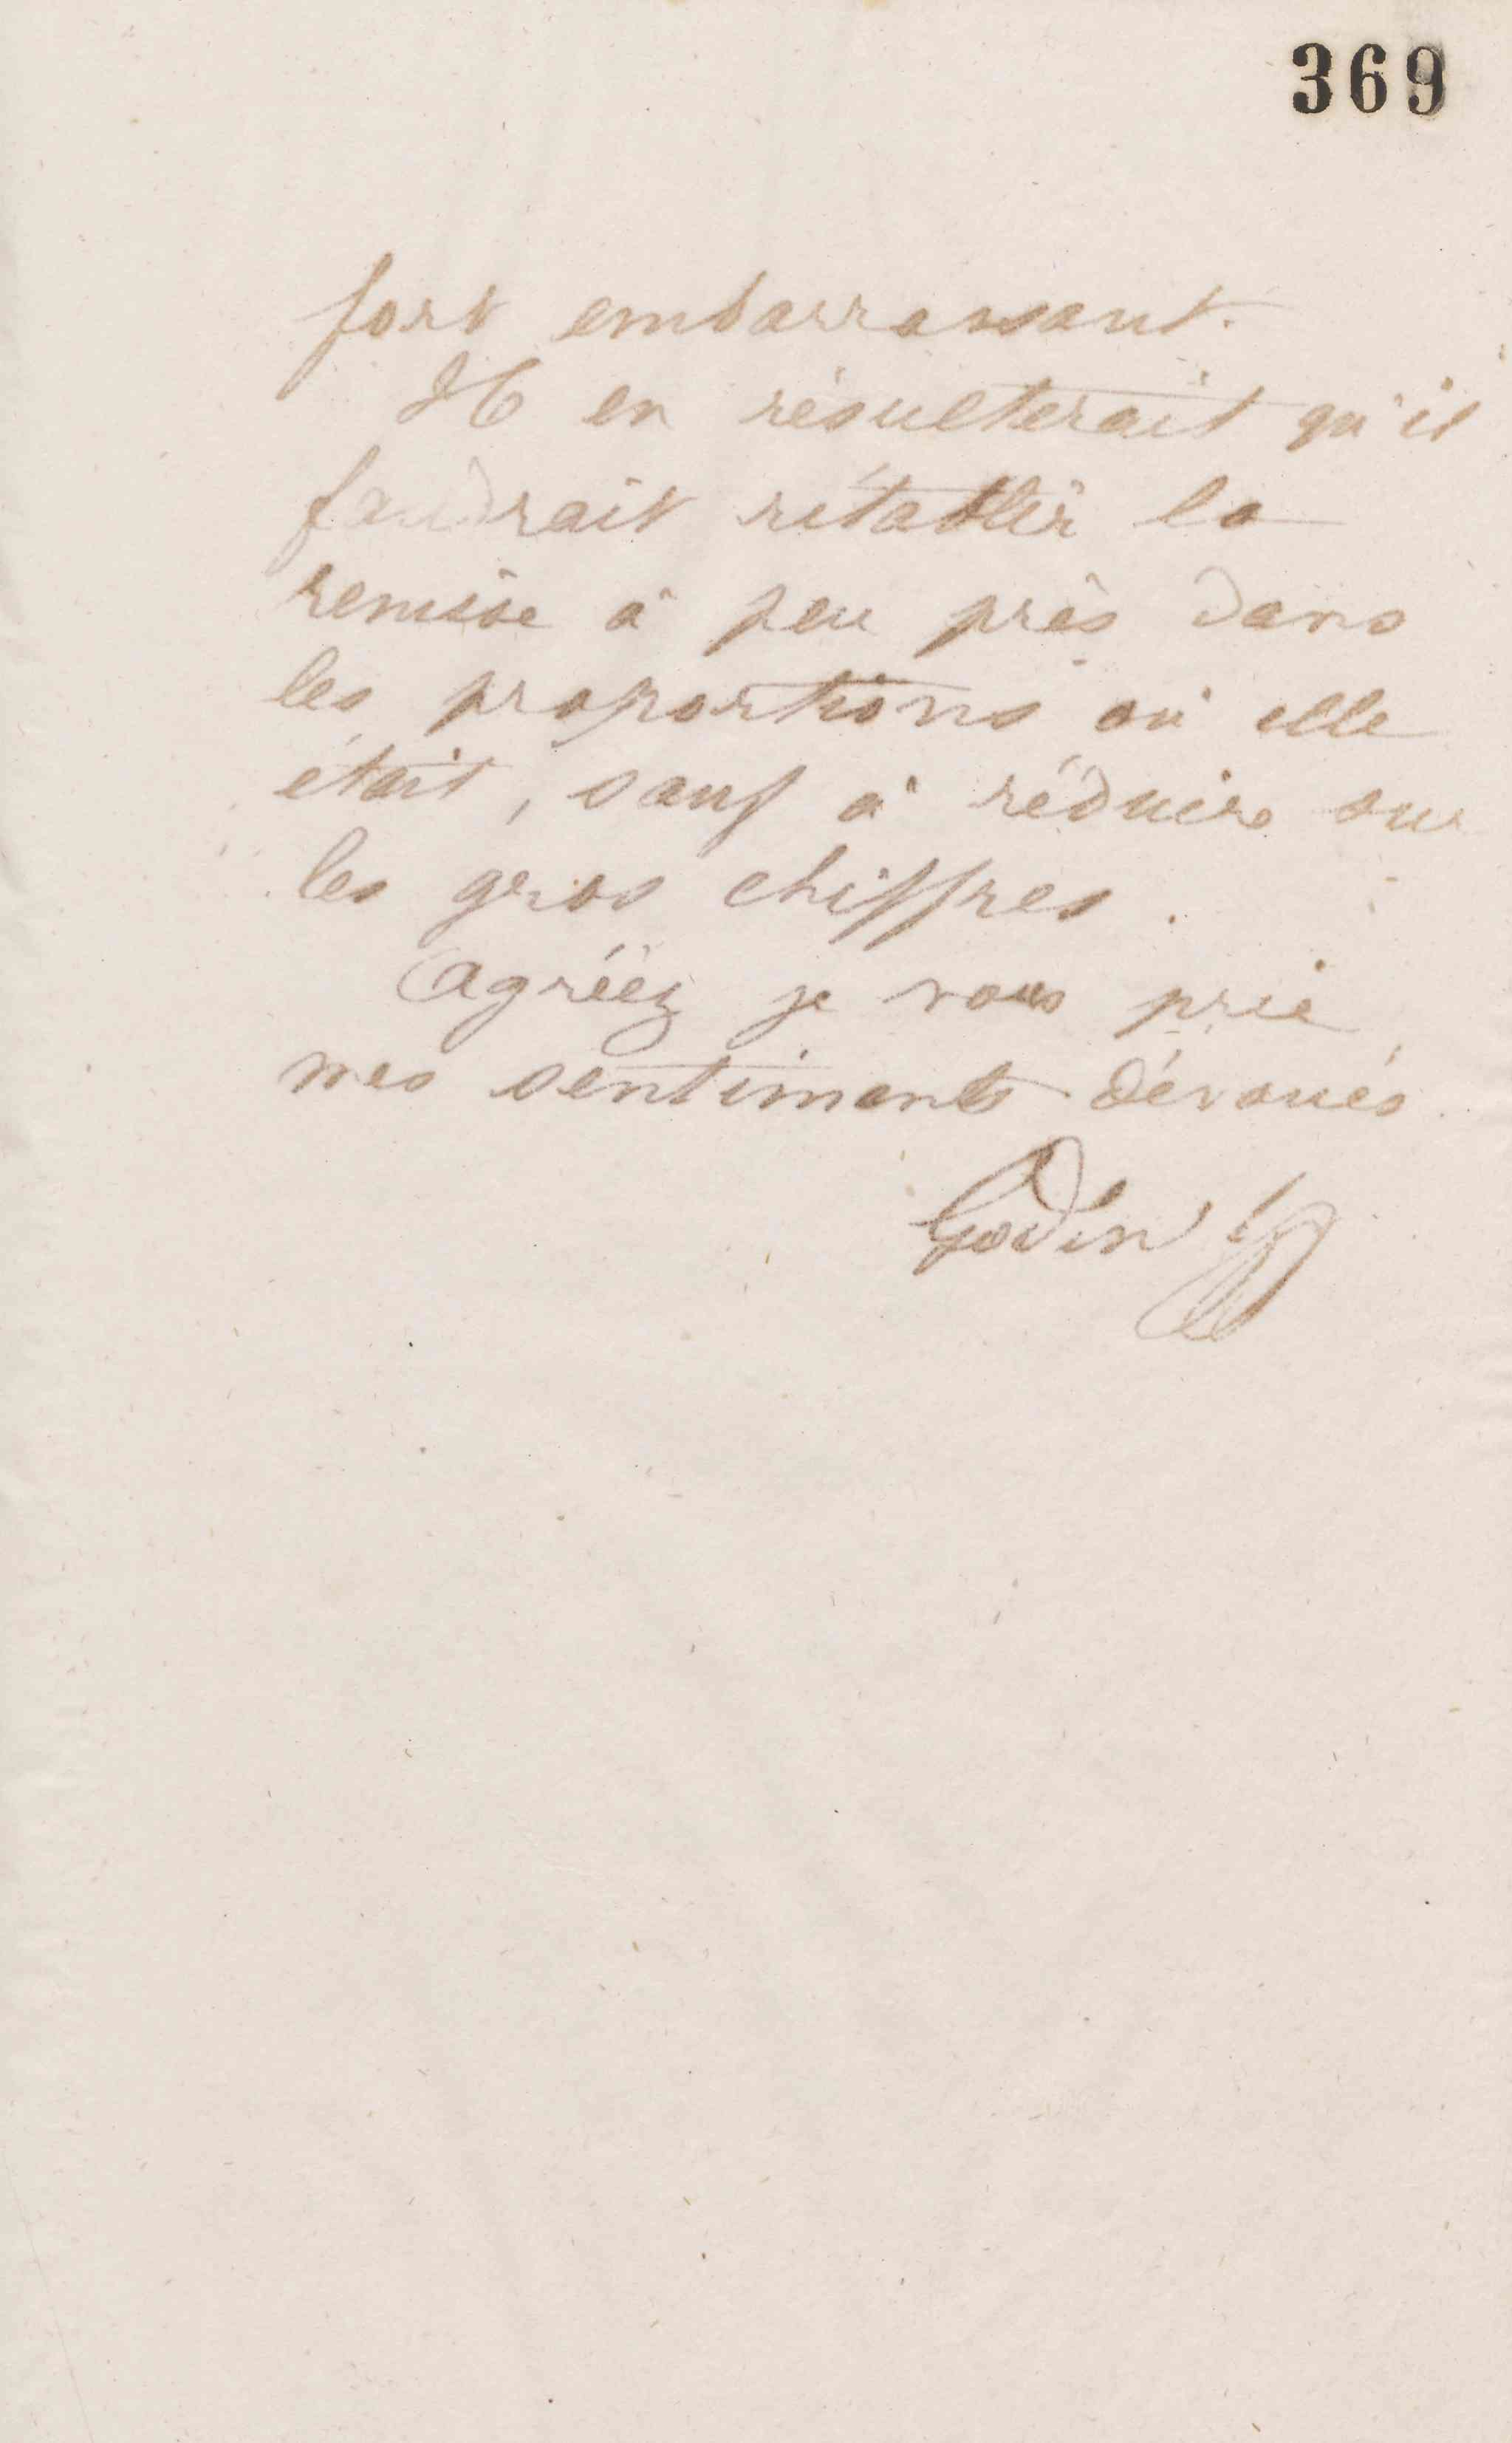 369
fort embarrassant.
Il en résulterait qu'il
faudrait rétablir la
remise à peu près dans
les proportions où elle
était, sauf à réduire sur
les gros chiffres.
Agréez je vous prie
mes sentiments dévoués.
Godin